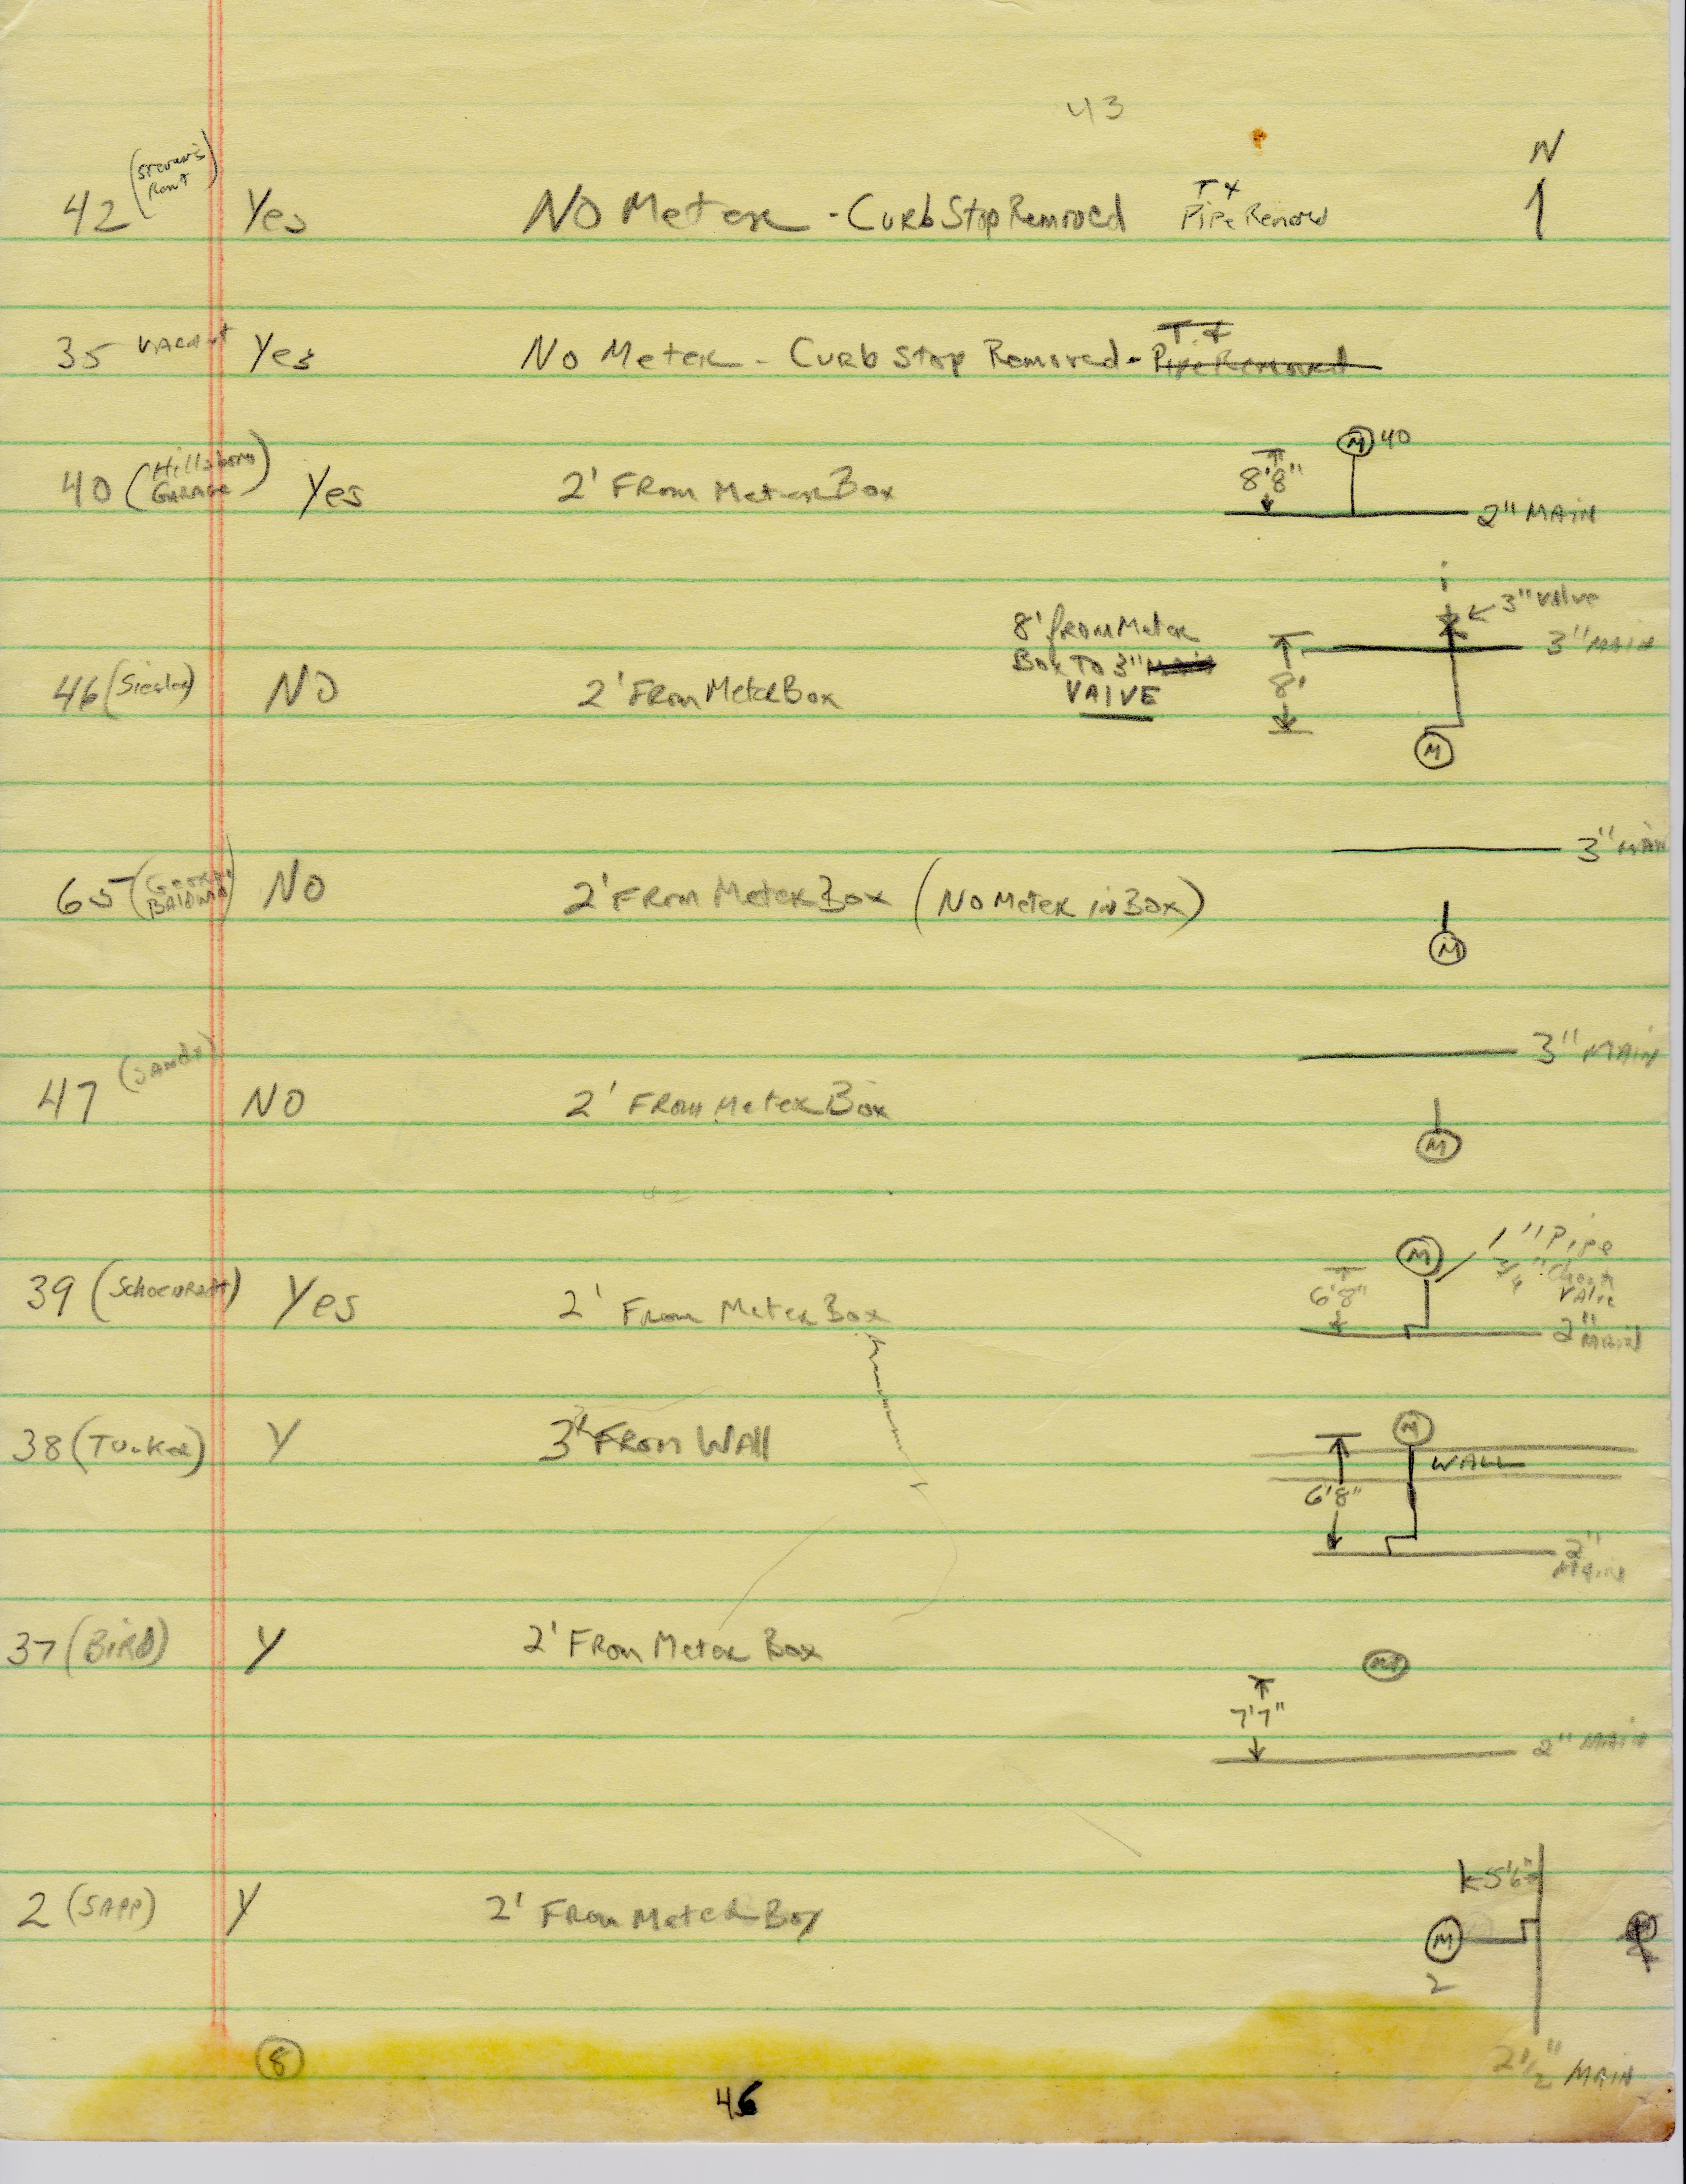 43
N
42 (Steven's Rent) Yes No Meter - Curb Stop Removed T & Pipe Removed
35 Vacant Yes No Meter - Curb Stop Removed - T & Pipe Removed
40 (Hillsboro Garage) Yes 2' From Meter Box
M 40
8'8"
2" MAIN
3" Valve
8' from Meter
Box TO 3" Main
VALVE
3" MAIN
46 (Siegler) NO 2' From Meter Box
8'
M
3" MAIN
65 (George Baldwin) NO 2' From Meter Box (No Meter in Box)
M
3" MAIN
47 (Sandy) NO 2' From Meter Box
M
42
M
1" Pipe
3/4" Check Valve
39 (Schoenradt) Yes 2' From Meter Box
6'8"
2" MAIN
38 (Tucker) Y 3' From Wall
M
WALL
6'8"
2" MAIN
37 (Bird) Y 2' From Meter Box
7'7"
2" MAIN
5'6"
2 (SAPP) Y 2' From Meter Box
M
2
8
2 1/2" MAIN
46